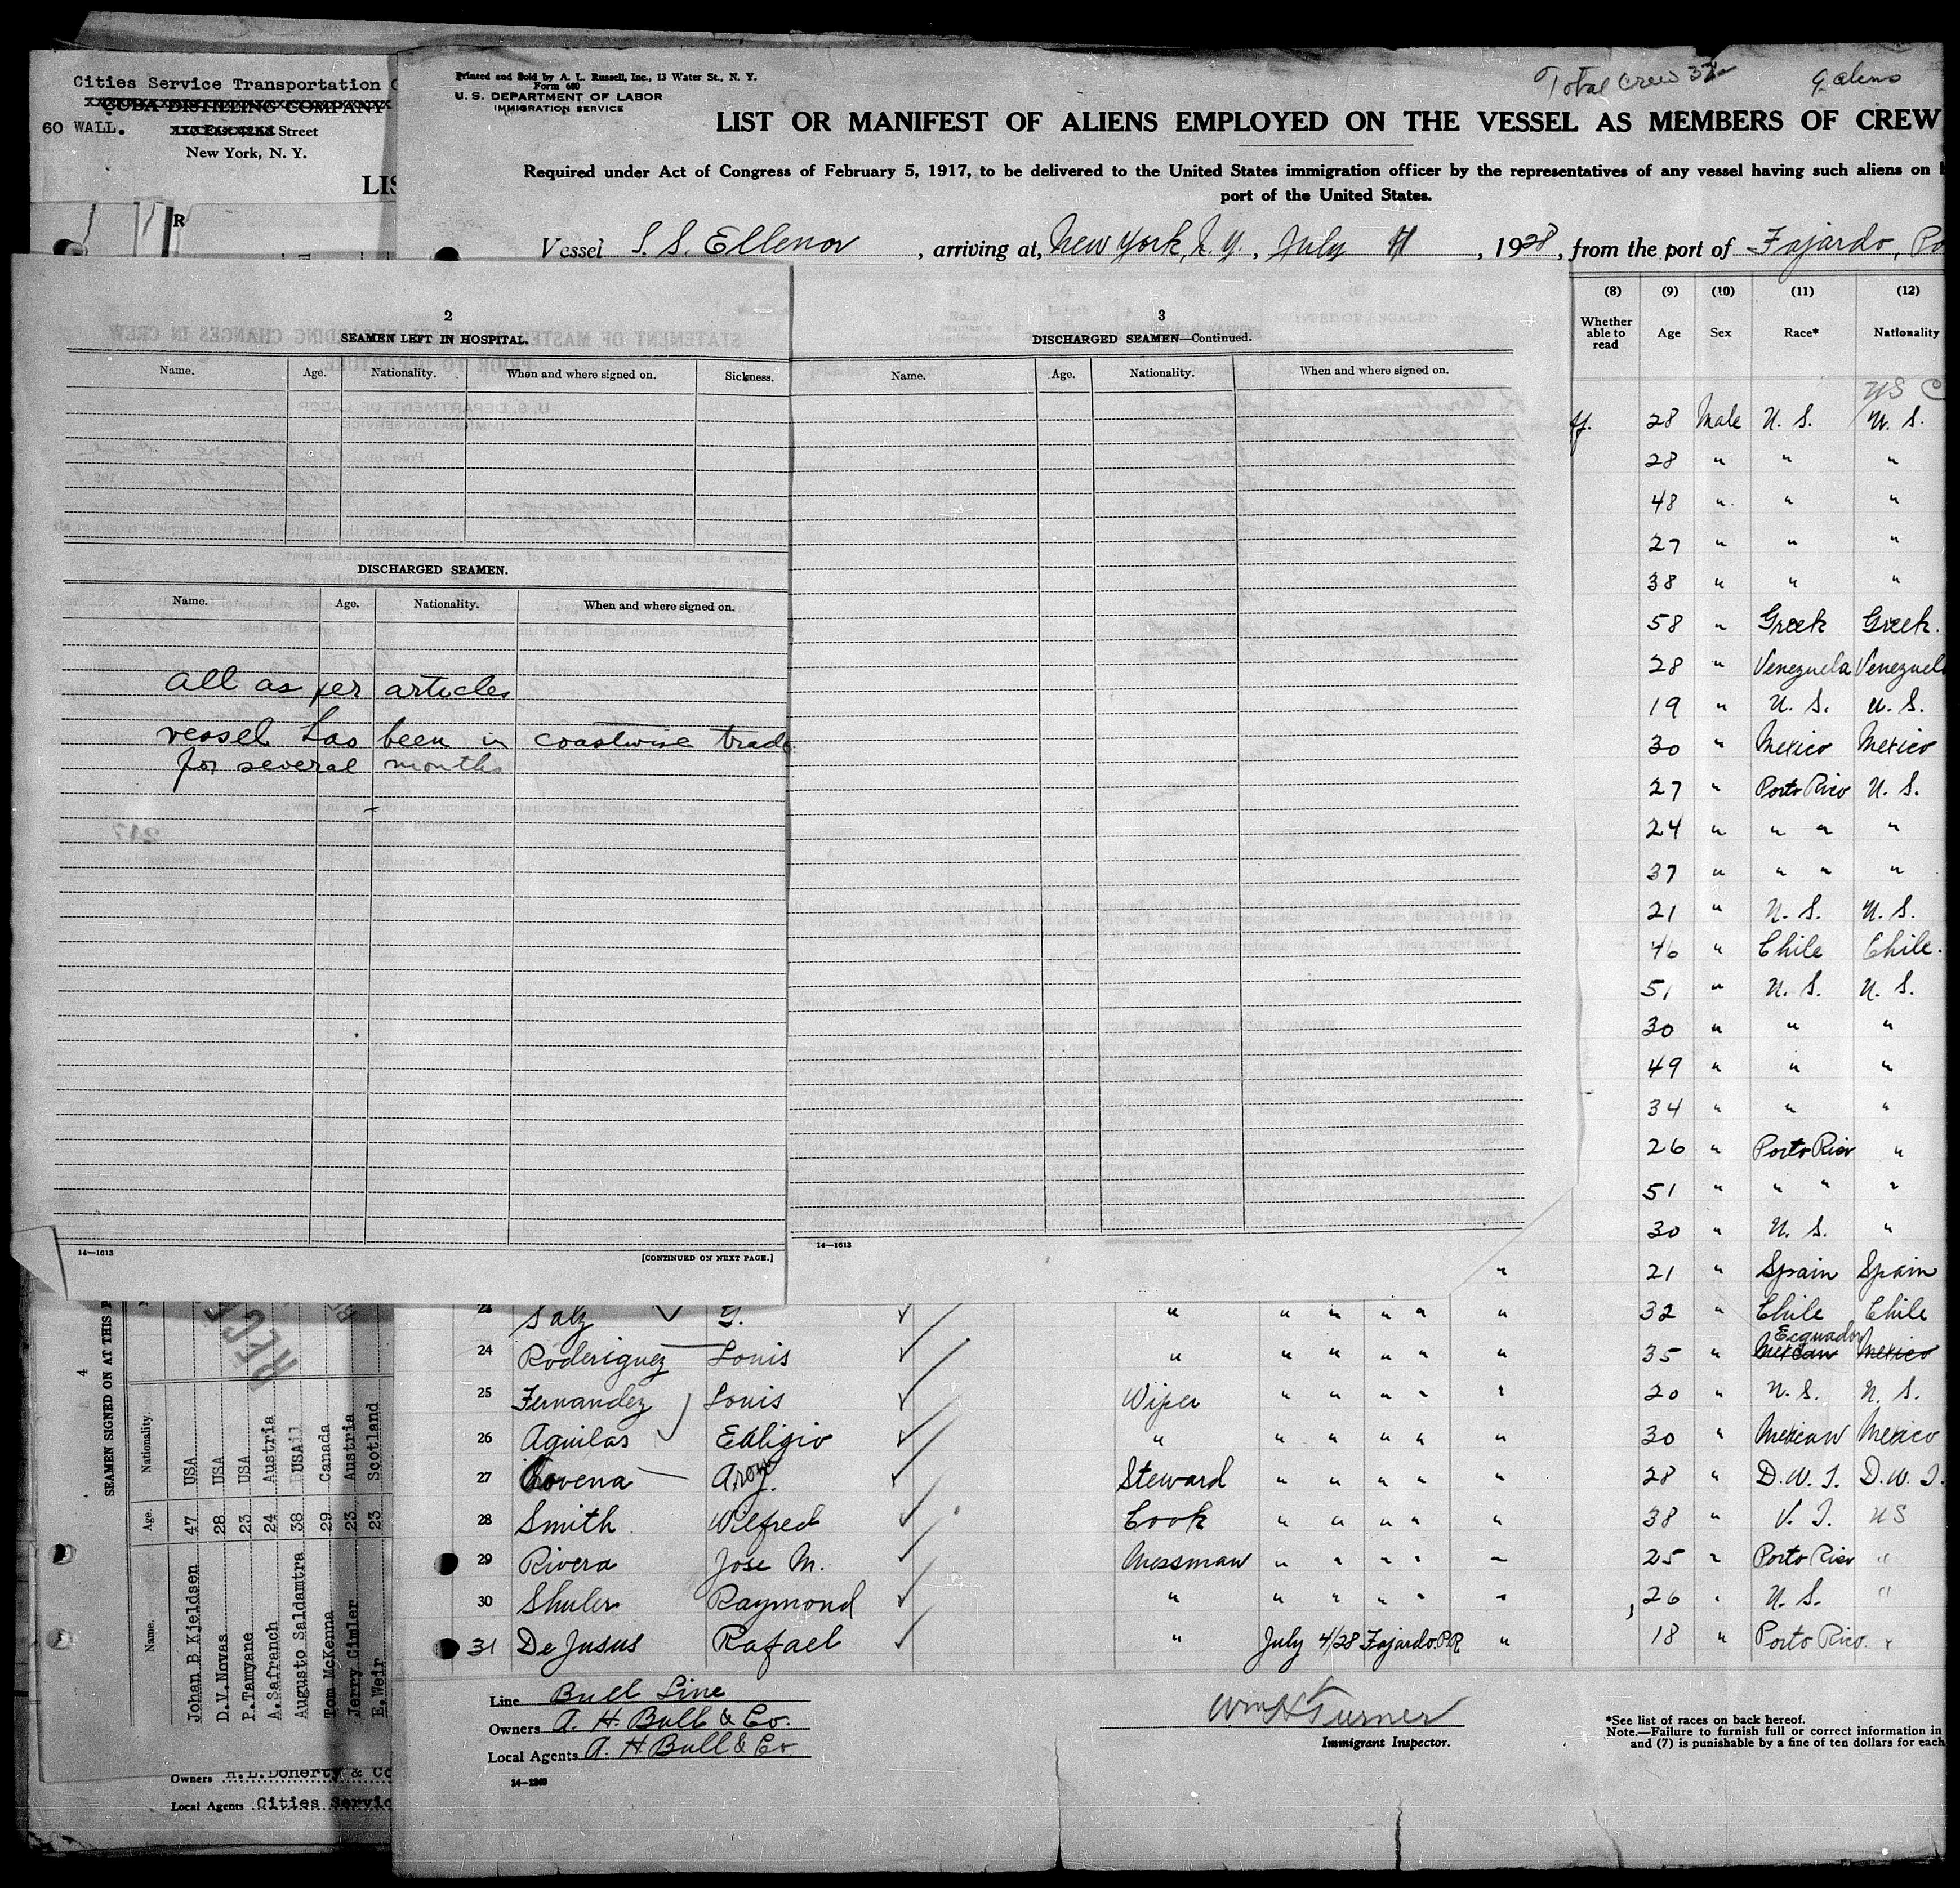 Cities Service Transportation
CUBA DISTILLING COMPANY
60 WALL. Street
New York, N. Y.
LIS
R
Printed and Sold by A. L. Russell, Inc., 13 Water St., N. Y.
Form 680
U. S. DEPARTMENT OF LABOR
IMMIGRATION SERVICE
Total Crew 32
9 aliens
LIST OR MANIFEST OF ALIENS EMPLOYED ON THE VESSEL AS MEMBERS OF CREW
Required under Act of Congress of February 5, 1917, to be delivered to the United States immigration officer by the representatives of any vessel having such aliens on
port of the United States.
Vessel S. S. Ellenor, arriving at, New York, N. Y., July 11, 1928, from the port of Fajardo, Po
2
SEAMEN LEFT IN HOSPITAL.
Name. Age. Nationality. When and where signed on. Sickness.
DISCHARGED SEAMEN.
Name. Age. Nationality. When and where signed on.
all as per articles
vessel has been in coastwise trade
for several months
14—1613
[CONTINUED ON NEXT PAGE.]
3
DISCHARGED SEAMEN—Continued.
Name. Age. Nationality. When and where signed on.
14—1613
(8) (9) (10) (11) (12)
Whether able to read Age Sex Race* Nationality
US C
28 Male U. S. U. S.
28 " " "
48 " " "
27 " " "
38 " " "
58 " Greek Greek.
28 " Venezuela Venezuel
19 " U. S. U. S.
30 " Mexico Mexico
27 " Porto Rico U. S.
24 " " " "
37 " " " "
21 " U. S. U. S.
46 " Chile Chile.
51 " U. S. U. S.
30 " " "
49 " " "
34 " " "
26 " Porto Rico "
51 " " " "
30 " U. S. "
" 21 " Spain Spain
23 Salz G. " " " " " " 32 " Chile Chile
Ecquador
24 Roderiguez Louis " " " " " " 35 " Mexican Mexico
25 Fernandez Louis Wiper " " " " " 20 " U. S. U. S.
26 Aguilas Euligio " " " " " " 30 " Mexican Mexico
27 Steward " " " " " 28 " D. W. I. D. W. I.
28 Smith Wilfred Cook " " " " " 38 " V. I. US
29 Rivera Jose M. Messman " " " " " 25 " Porto Rico "
30 Shuler Raymond " " " " " " 26 " U. S. "
31 De Jusus Rafael " July 4/28 Fajardo. P.R " 18 " Porto Rico. "
Line Bull Line
Owners A. H. Bull & Co.
Local Agents A. H. Bull & Co
14—1240
Wm H Turner
Immigrant Inspector.
*See list of races on back hereof.
Note.—Failure to furnish full or correct information in
and (7) is punishable by a fine of ten dollars for each
4
SEAMEN SIGNED ON AT THIS P
Name. Age. Nationality.
Johan B Kjeldsen 47 USA
D.V.Novas 28 USA
P.Tamyane 23 USA
A.Safranch 24 Austria
Augusto Saldamtra 38 USA
Tom McKenna 29 Canada
Jerry Cimler 23 Austria
E.Weir 23 Scotland
RECE
Owners H.L.Doherty & Co
Local Agents Cities Servic